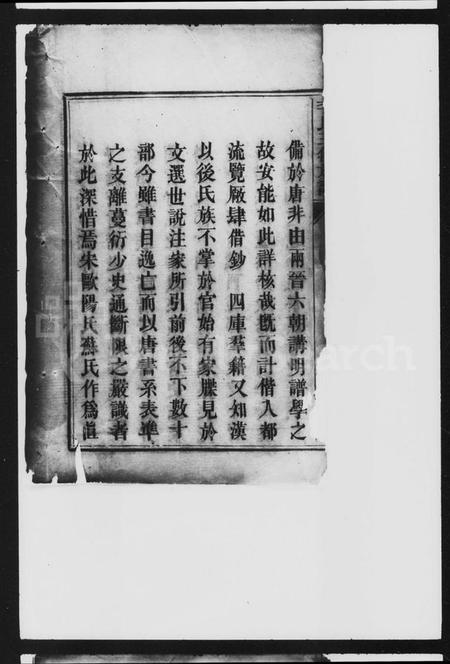 備於唐非由兩晉六朝講明譜學之
故安能如此詳核哉既而計偕入都
流覽厰肆借鈔 四庫羣籍又知漢
以後氏族不掌於官始有家牒見於
文選世說注家所引前後不下數十
部今雖書目逸亡而以唐書系表準
之支離蔓衍少史通斷限之嚴識者
於此深惜焉宋歐陽氏蘇氏作爲直